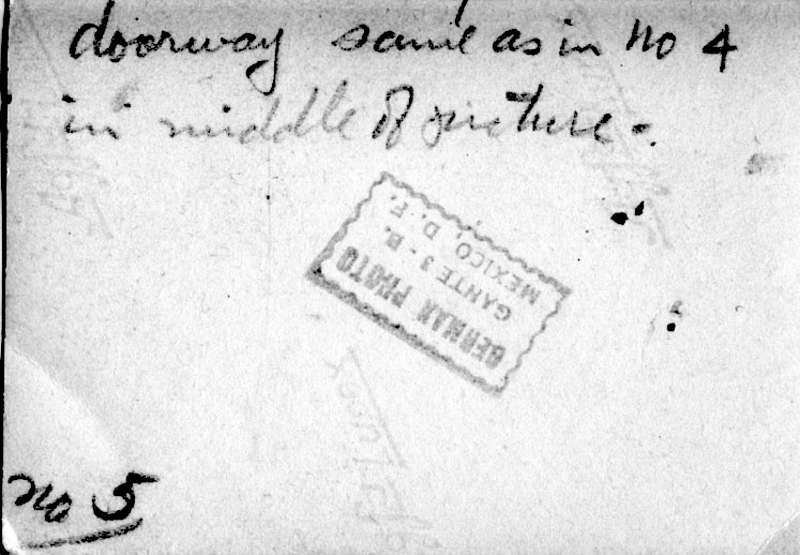 doorway same as in no 4
in middle of picture -
BERMAN PHOTO
GANTE 3 - B.
MEXICO, D. F.
no 5